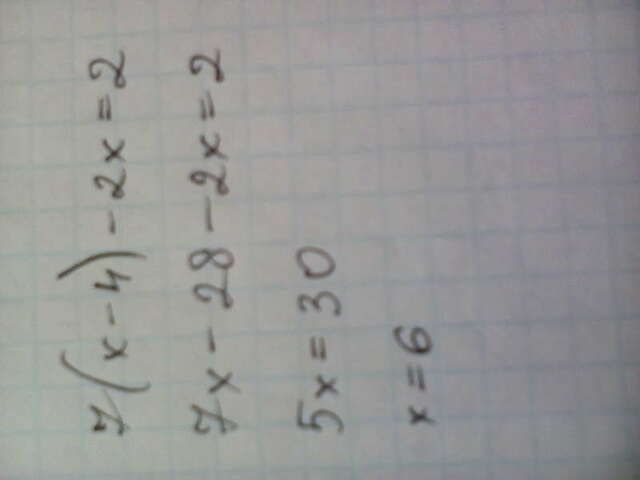 7(x-4)-2x=2
7x-28-2x=2
5x=30
x=6